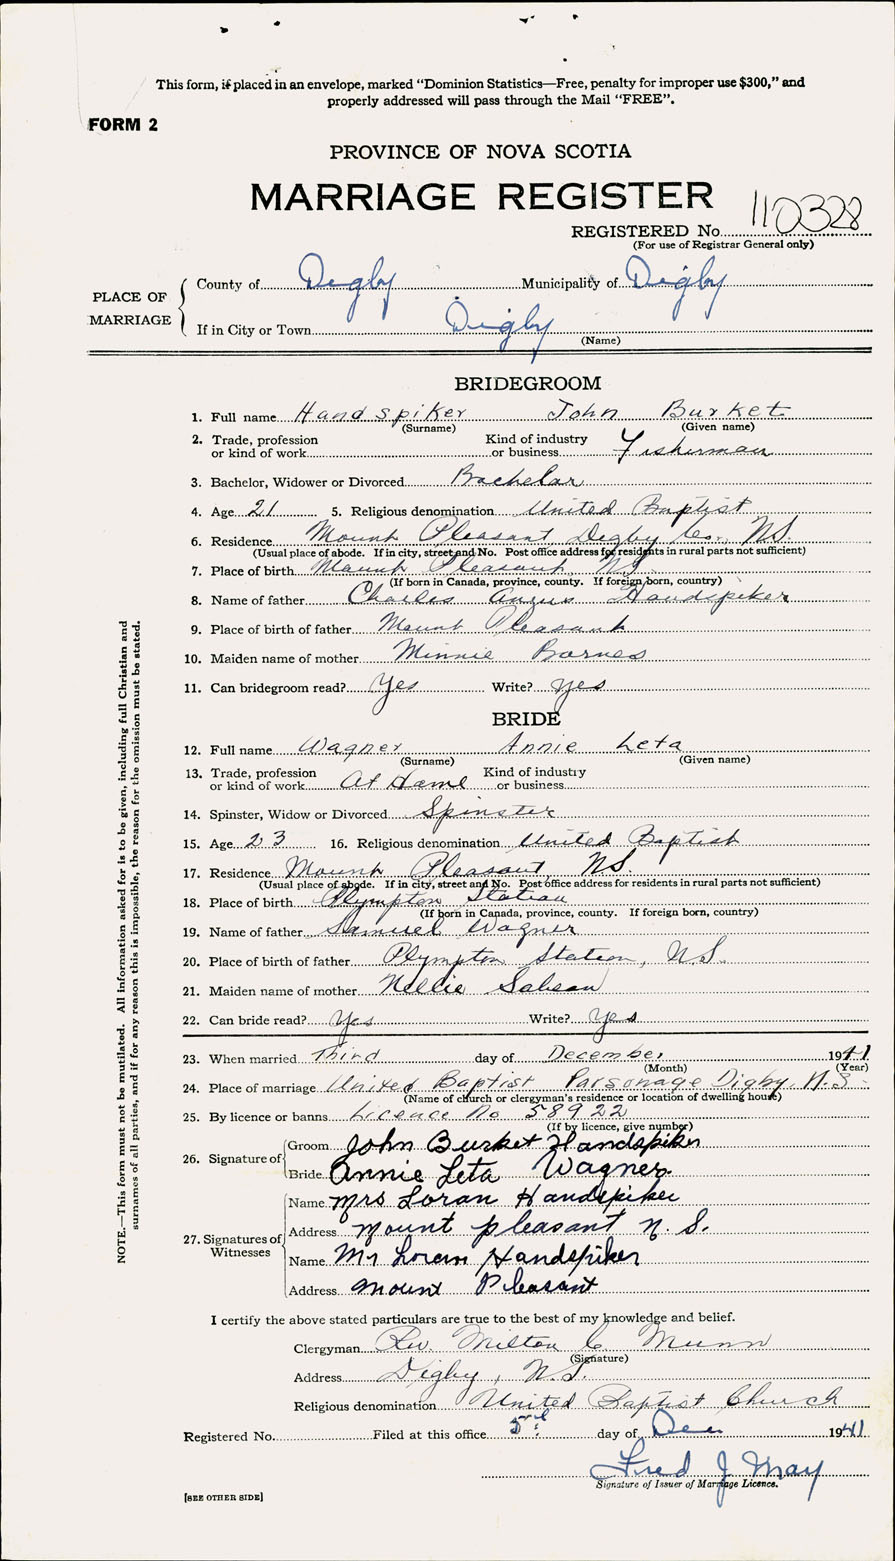 This form, if placed in an envelope, marked "Dominion Statistics—Free, penalty for improper use $300," and
properly addressed will pass through the Mail "FREE".
FORM 2
PROVINCE OF NOVA SCOTIA
MARRIAGE REGISTER
REGISTERED No. 110328
(For use of Registrar General only)
PLACE OF MARRIAGE
County of Digby Municipality of Digby
If in City or Town Digby
(Name)
BRIDEGROOM
1. Full name Handspiker John Burket
(Surname) (Given name)
2. Trade, profession or kind of work Kind of industry or business Fisherman
3. Bachelor, Widower or Divorced Bachelor
4. Age 21 5. Religious denomination United Baptist
6. Residence Mount Pleasant Digby Co. N.S.
(Usual place of abode. If in city, street and No. Post office address for residents in rural parts not sufficient)
7. Place of birth Mount Pleasant N.S.
(If born in Canada, province, county. If foreign born, country)
8. Name of father Charles Angus Handspiker
9. Place of birth of father Mount Pleasant
10. Maiden name of mother Minnie Barnes
11. Can bridegroom read? Yes Write? Yes
BRIDE
12. Full name Wagner Annie Leta
(Surname) (Given name)
13. Trade, profession or kind of work At Home Kind of industry or business
14. Spinster, Widow or Divorced Spinster
15. Age 23 16. Religious denomination United Baptist
17. Residence Mount Pleasant, N.S.
(Usual place of abode. If in city, street and No. Post office address for residents in rural parts not sufficient)
18. Place of birth Plympton Station
(If born in Canada, province, county. If foreign born, country)
19. Name of father Samuel Wagner
20. Place of birth of father Plympton Station, N.S.
21. Maiden name of mother Nellie Sabean
22. Can bride read? Yes Write? Yes
23. When married Third day of December 1941
(Month) (Year)
24. Place of marriage United Baptist Parsonage Digby, N.S.
(Name of church or clergyman's residence or location of dwelling house)
25. By licence or banns Licence No 58922
(If by licence, give number)
26. Signature of
Groom John Burket Handspiker
Bride Annie Leta Wagner
27. Signatures of Witnesses
Name Mrs Loran Handspiker
Address Mount pleasant N.S.
Name Mr Loran Handspiker
Address Mount Pleasant
I certify the above stated particulars are true to the best of my knowledge and belief.
Clergyman Rev. Milton C Munn
(Signature)
Address Digby, N.S.
Religious denomination United Baptist Church
Registered No. Filed at this office 5rd day of Dec 1941
Fred J May
Signature of Issuer of Marriage Licence.
[SEE OTHER SIDE]
NOTE.—This form must not be mutilated. All information asked for is to be given, including full Christian and
surnames of all parties, and if for any reason this is impossible, the reason for the omission must be stated.